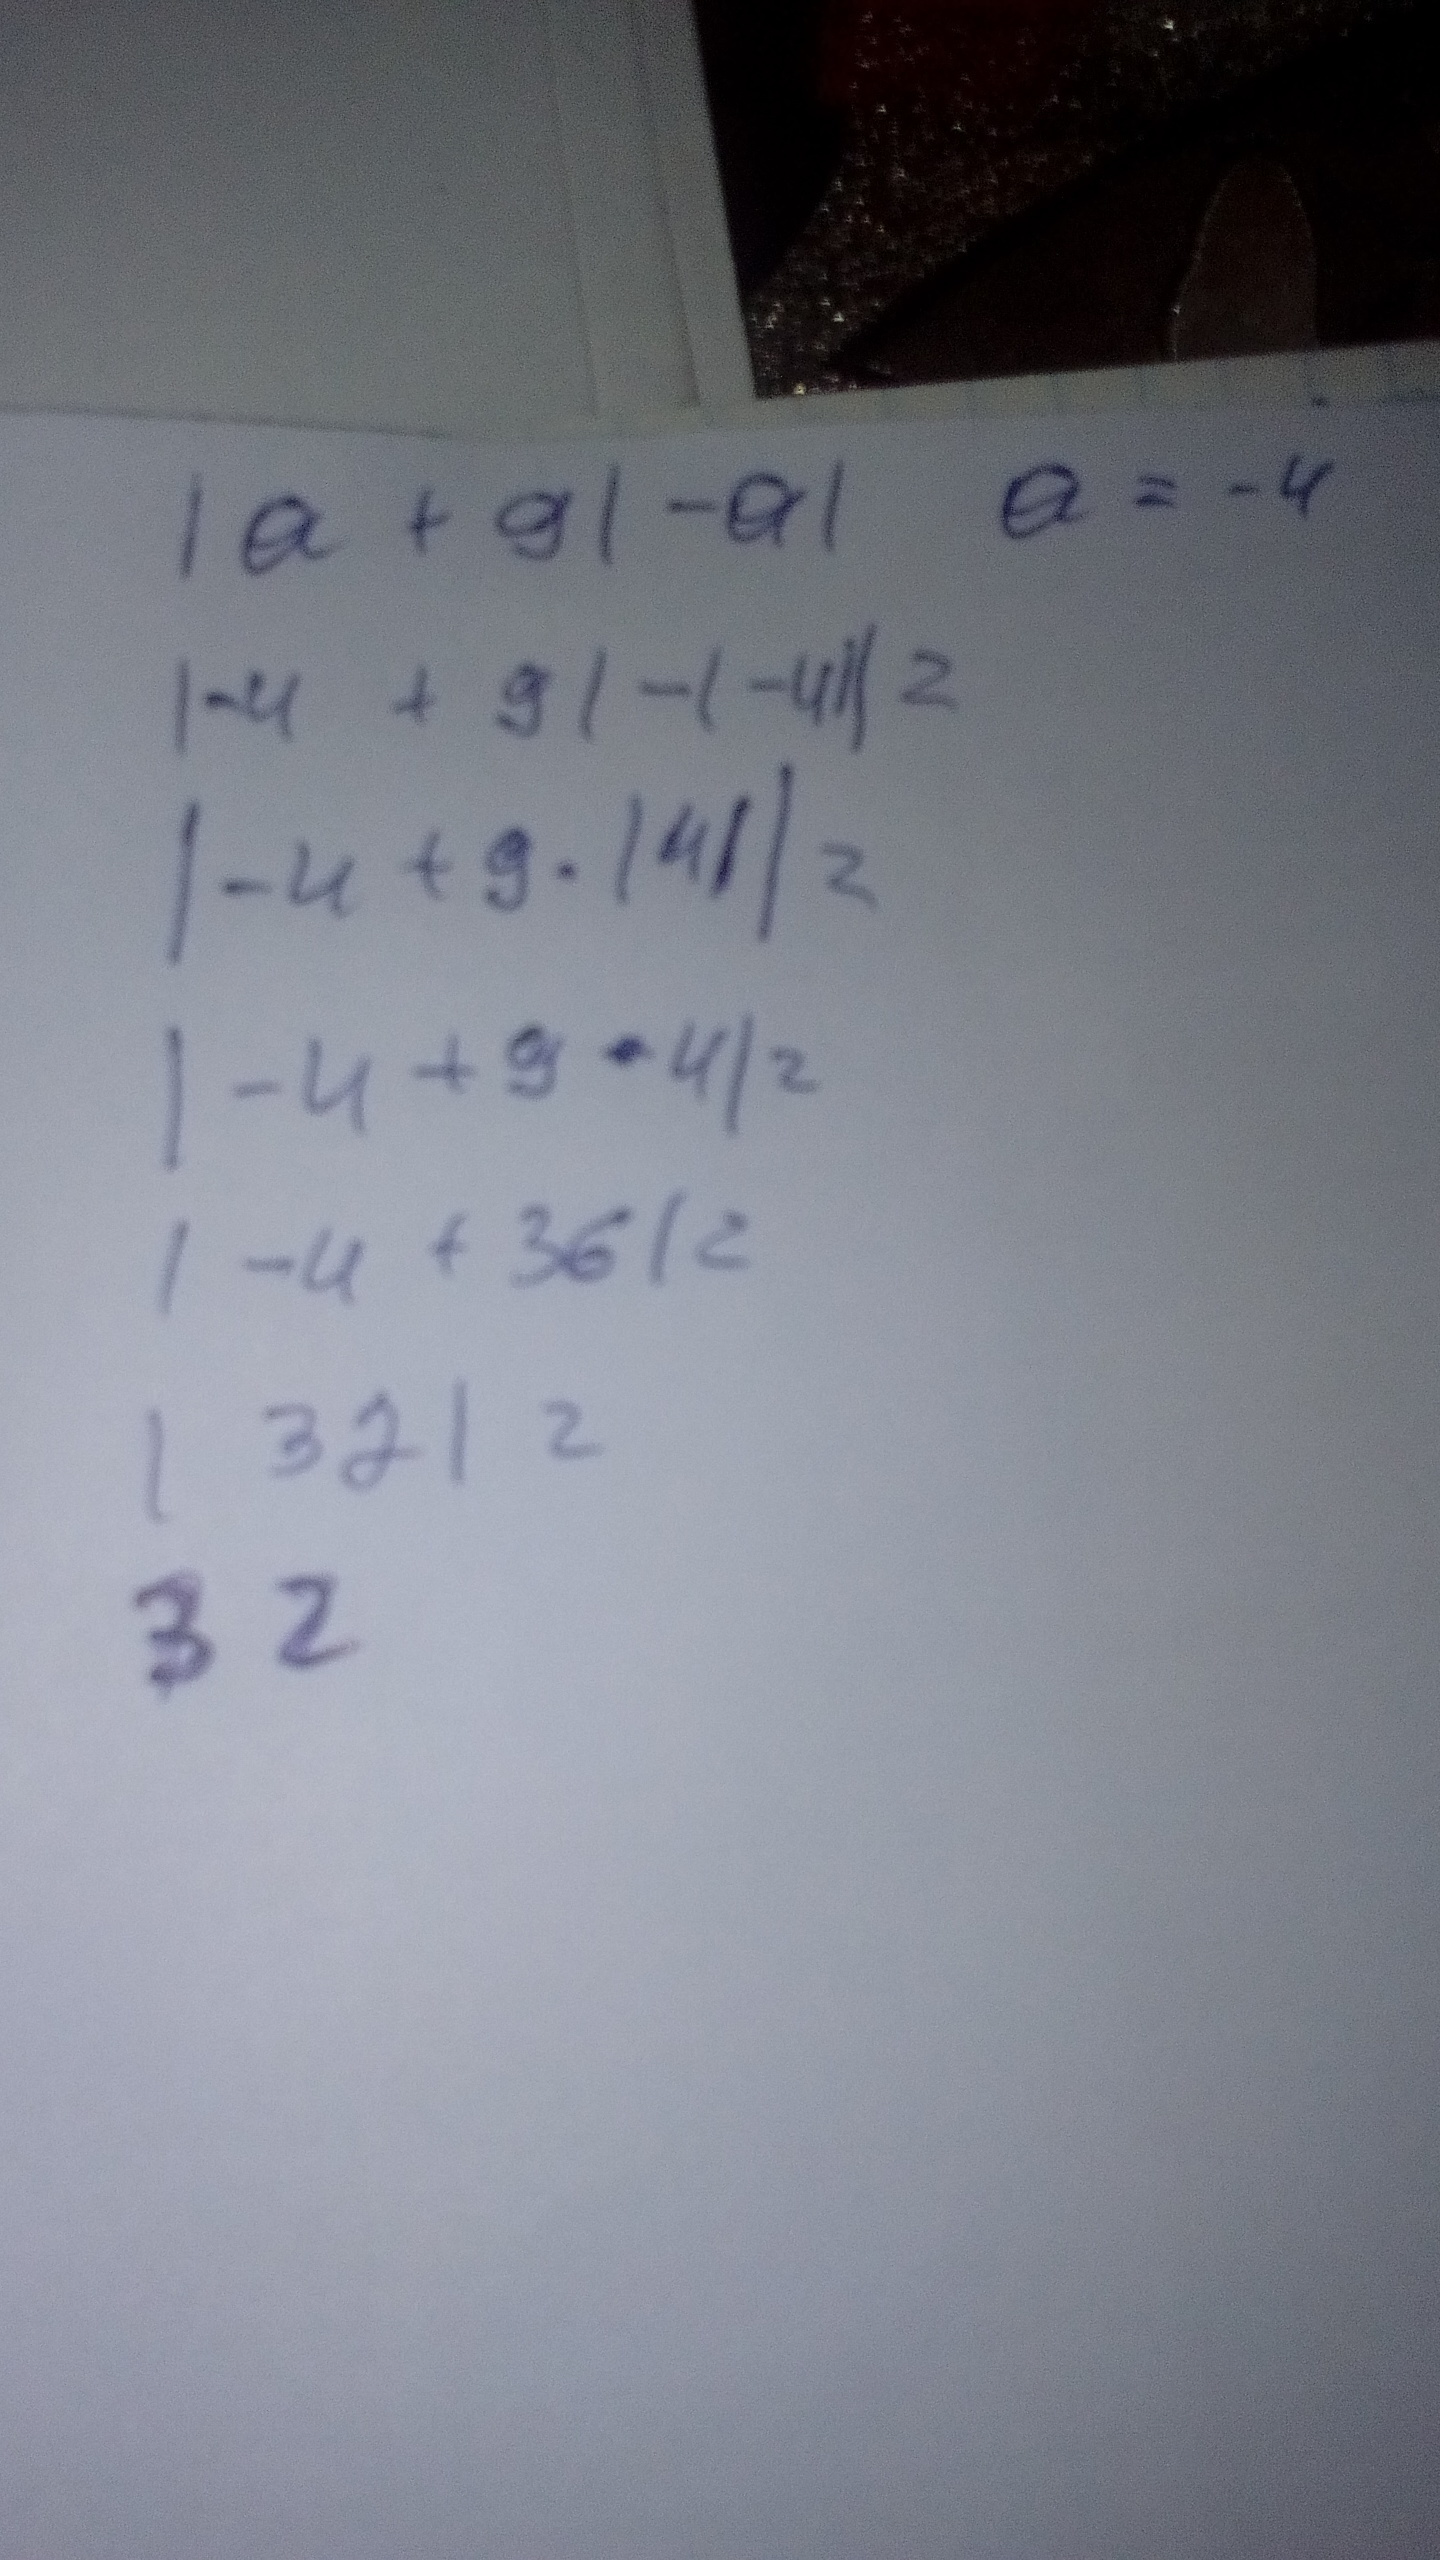 |a + 9| -a| a = -4
|-4 + 9| -(-4)|| =
|-4 + 9 · |4|| =
|-4 + 9 · 4| =
|-4 + 36| =
|32| =
32